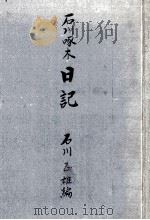 石川啄木
日記
石川正雄編